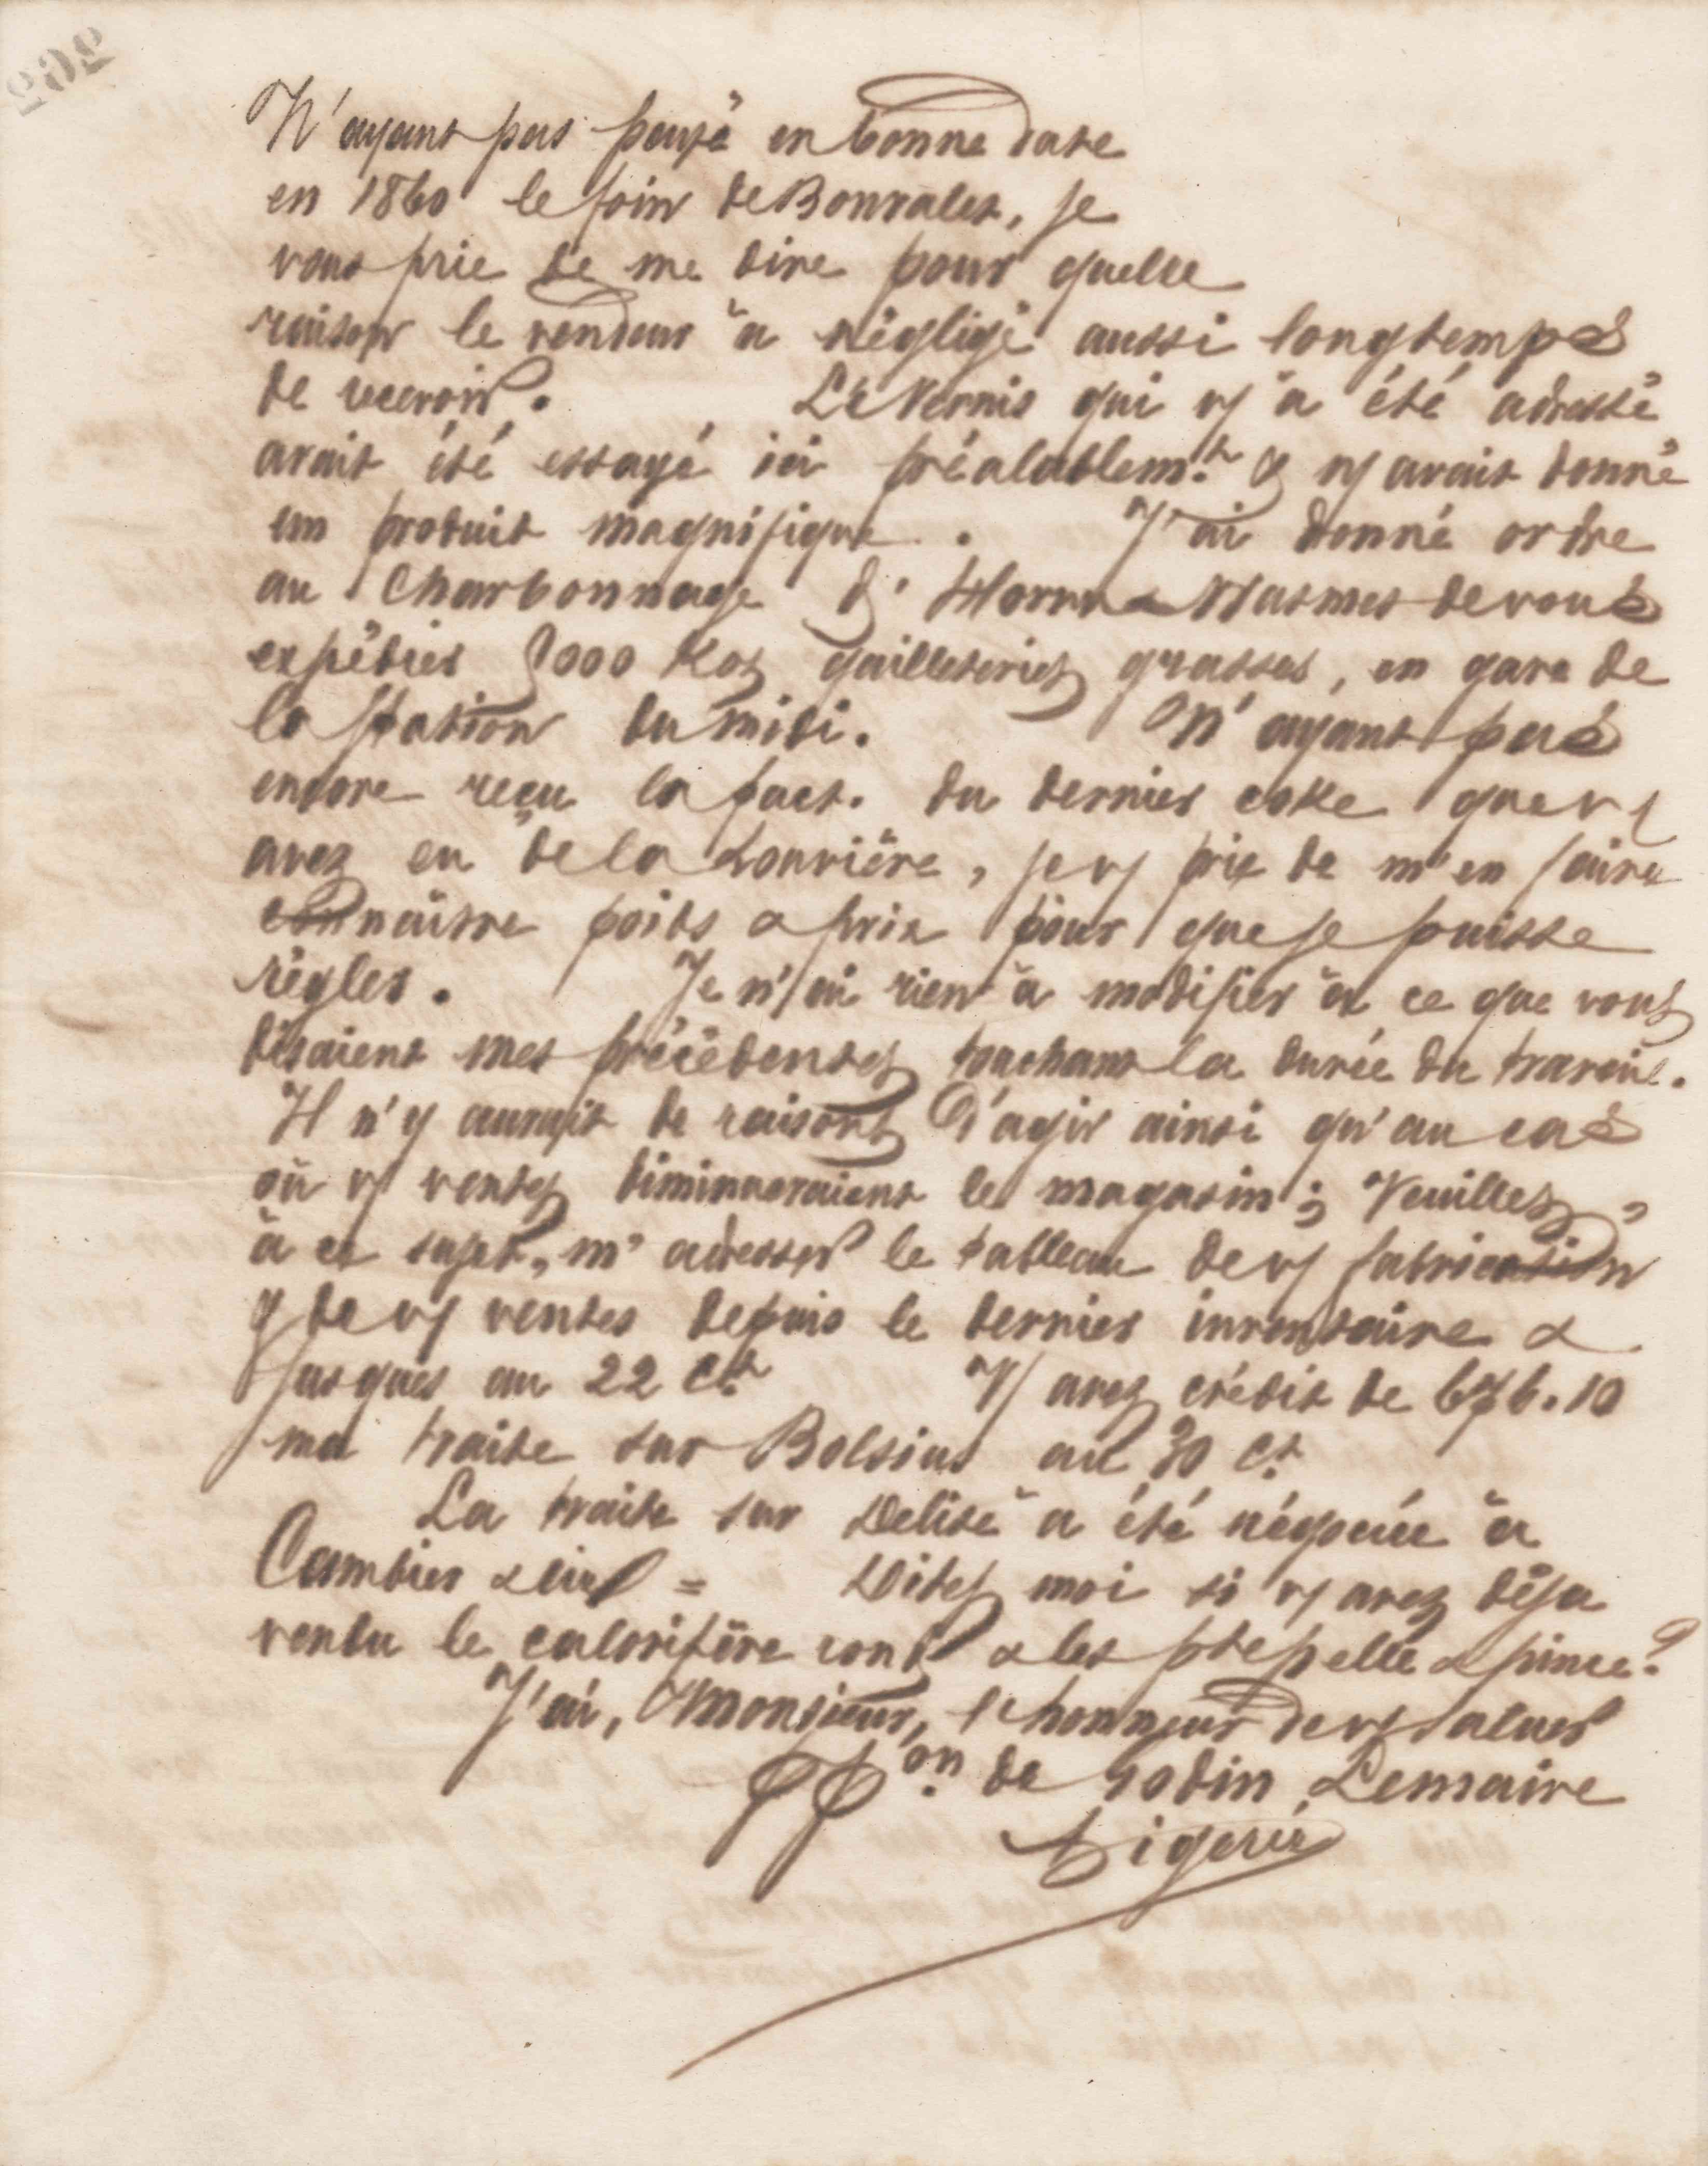 N'ayant pas payé en bonne date
en 1860 le foin de Bonvalet, je
vous prie de me dire pour quelle
raison le vendeur a négligé aussi longtemps
de recevoir. Le Vernis qui vs a été adressé
avait été essayé ici préalablemt. & ns avait donné
un produit magnifique. J'ai donné ordre
au Charbonnage d'Hornu & Wasmes de vous
expédier 9000 Kos gailleteries grasses, en gare de
la Station du midi. N'ayant pas
encore reçu la fact. du dernier coke que vs
avez eu de la Louvière, je vs prie de m'en faire
connaître poids & prix pour que je puisse
régler. Je n'ai rien à modifier à ce que vous
disaient mes précédentes touchant la durée du travail.
Il n'y aurait de raisons d'agir ainsi qu'au cas
où vs ventes diminueraient le magasin; Veuillez,
à ce sujet, m'adresser le tableau de vs fabrication
& de vs ventes depuis le dernier inventaire &
jusques au 22 Ct. Vs avez crédit de 676.10
ma traite sur Bolsius au 30 Ct.
La traite sur Delisé a été négociée à
Cambier & = Dites moi si vs avez déja
vendu le calorifère rond & les pte pelle & pince?
J'ai, Monsieur, l'honneur de vs saluer
PPon. de Godin Lemaire